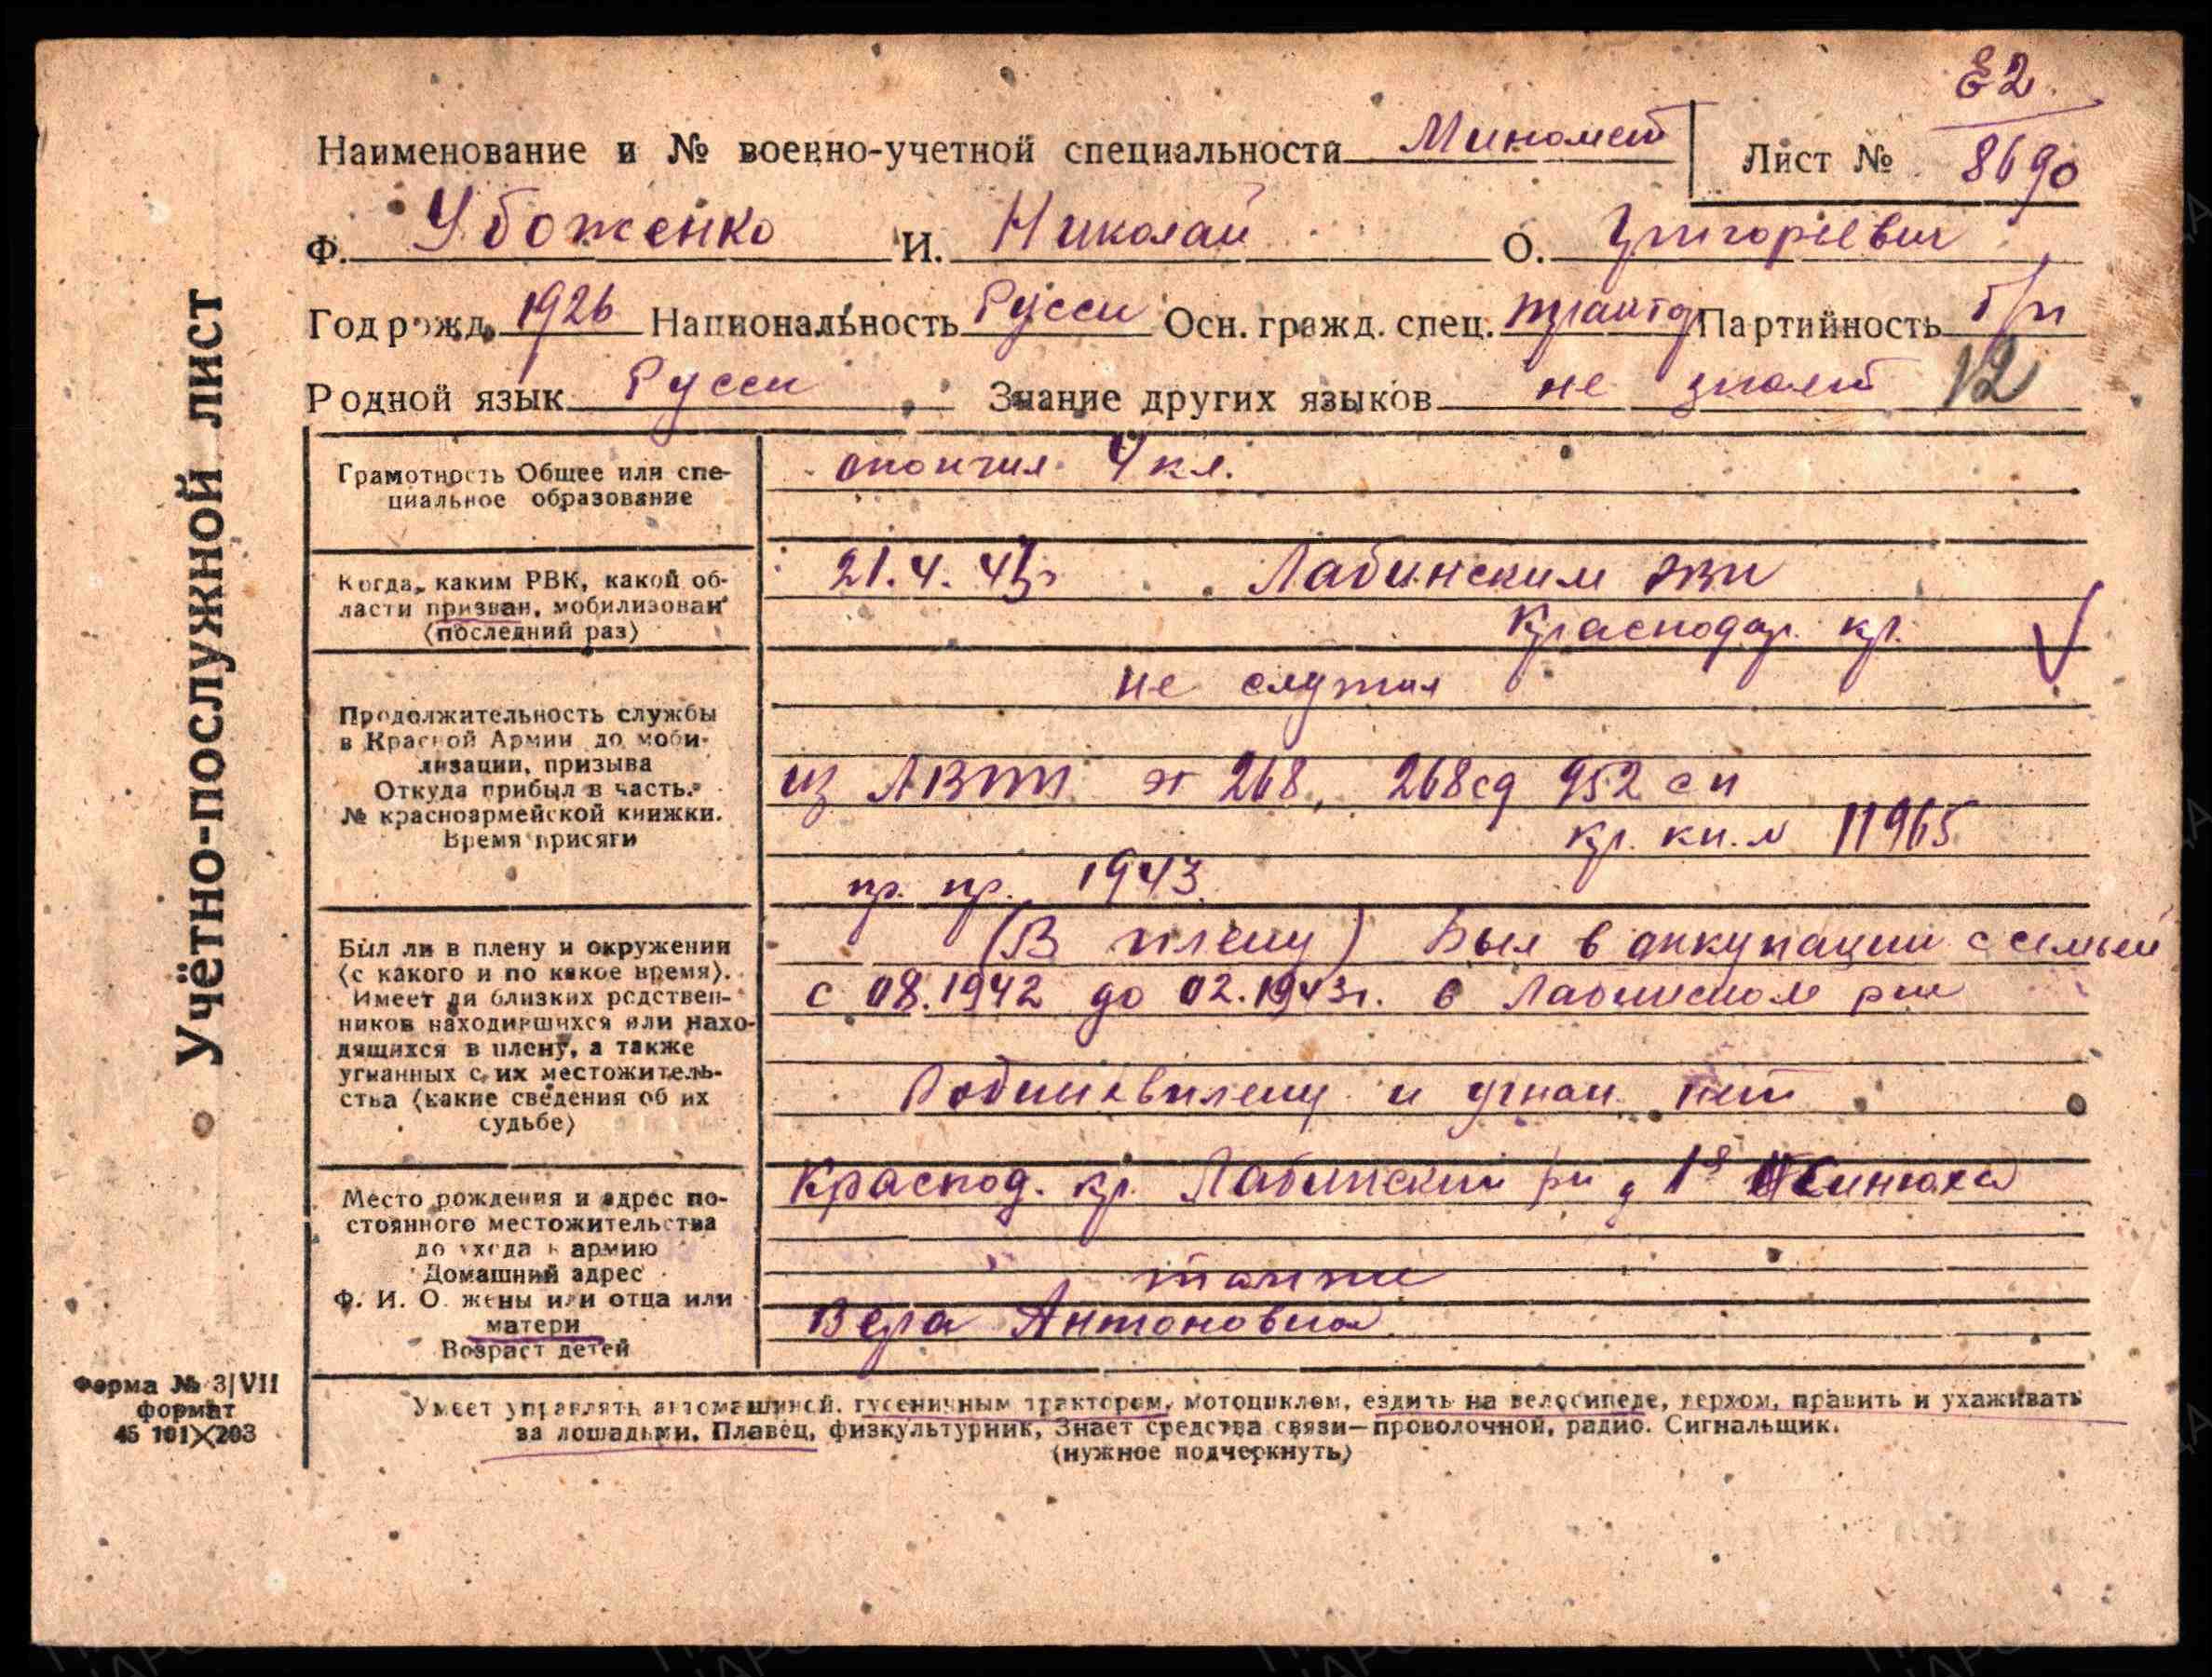 Е2.
Наименование и № военно-учетной специальности Миномет Лист № 8690
Ф. Убоженко И. Николай О. Григорьевич
Год рожд. 1926 Национальность Русск Осн. гражд. спец. трактор Партийность б/п
Родной язык Русск Знание других языков не знает 12
Учётно-послужной лист
Грамотность Общее или спе-
циальное образование
окончил 4 кл.
Когда, каким РВК, какой об-
ласти призван, мобилизован
(последний раз)
21.4.43г Лабинским
Краснодар. кр.
Продолжительность службы
в Красной Армии до моби-
лизации, призыва
Откуда прибыл в часть.
№ красноармейской книжки.
Время присяги
не служил
из эт 268, 268 сд 952 сп
кр. кн. № 11965
пр. пр. 1943.
Был ли в плену и окружении
(с какого и по какое время).
Имеет ли близких родствен-
ников находившихся или нахо-
дящихся в плену, а также
угнанных с их местожитель-
ства (какие сведения об их
судьбе)
(В плену) Был в оккупации с семьей
с 08.1942 до 02.1943г. в Лабинском рне
в плену и угнан нет
Место рождения и адрес по-
стоянного местожительства
до ухода в армию
Домашний адрес
Ф. И. О. жены или отца или
матери
Возраст детей
Краснод. кр. Лабинский р-н д 1я Синюха
таже
Вера Антоновна
Умеет управлять автомашиной, гусеничным трактором, мотоциклом, ездить на велосипеде, верхом, править и ухаживать
за лошадьми. Плавец, физкультурник, Знает средства связи—проволочной, радио. Сигнальщик.
(нужное подчеркнуть)
Форма № 3|VII
формат
45 101×203